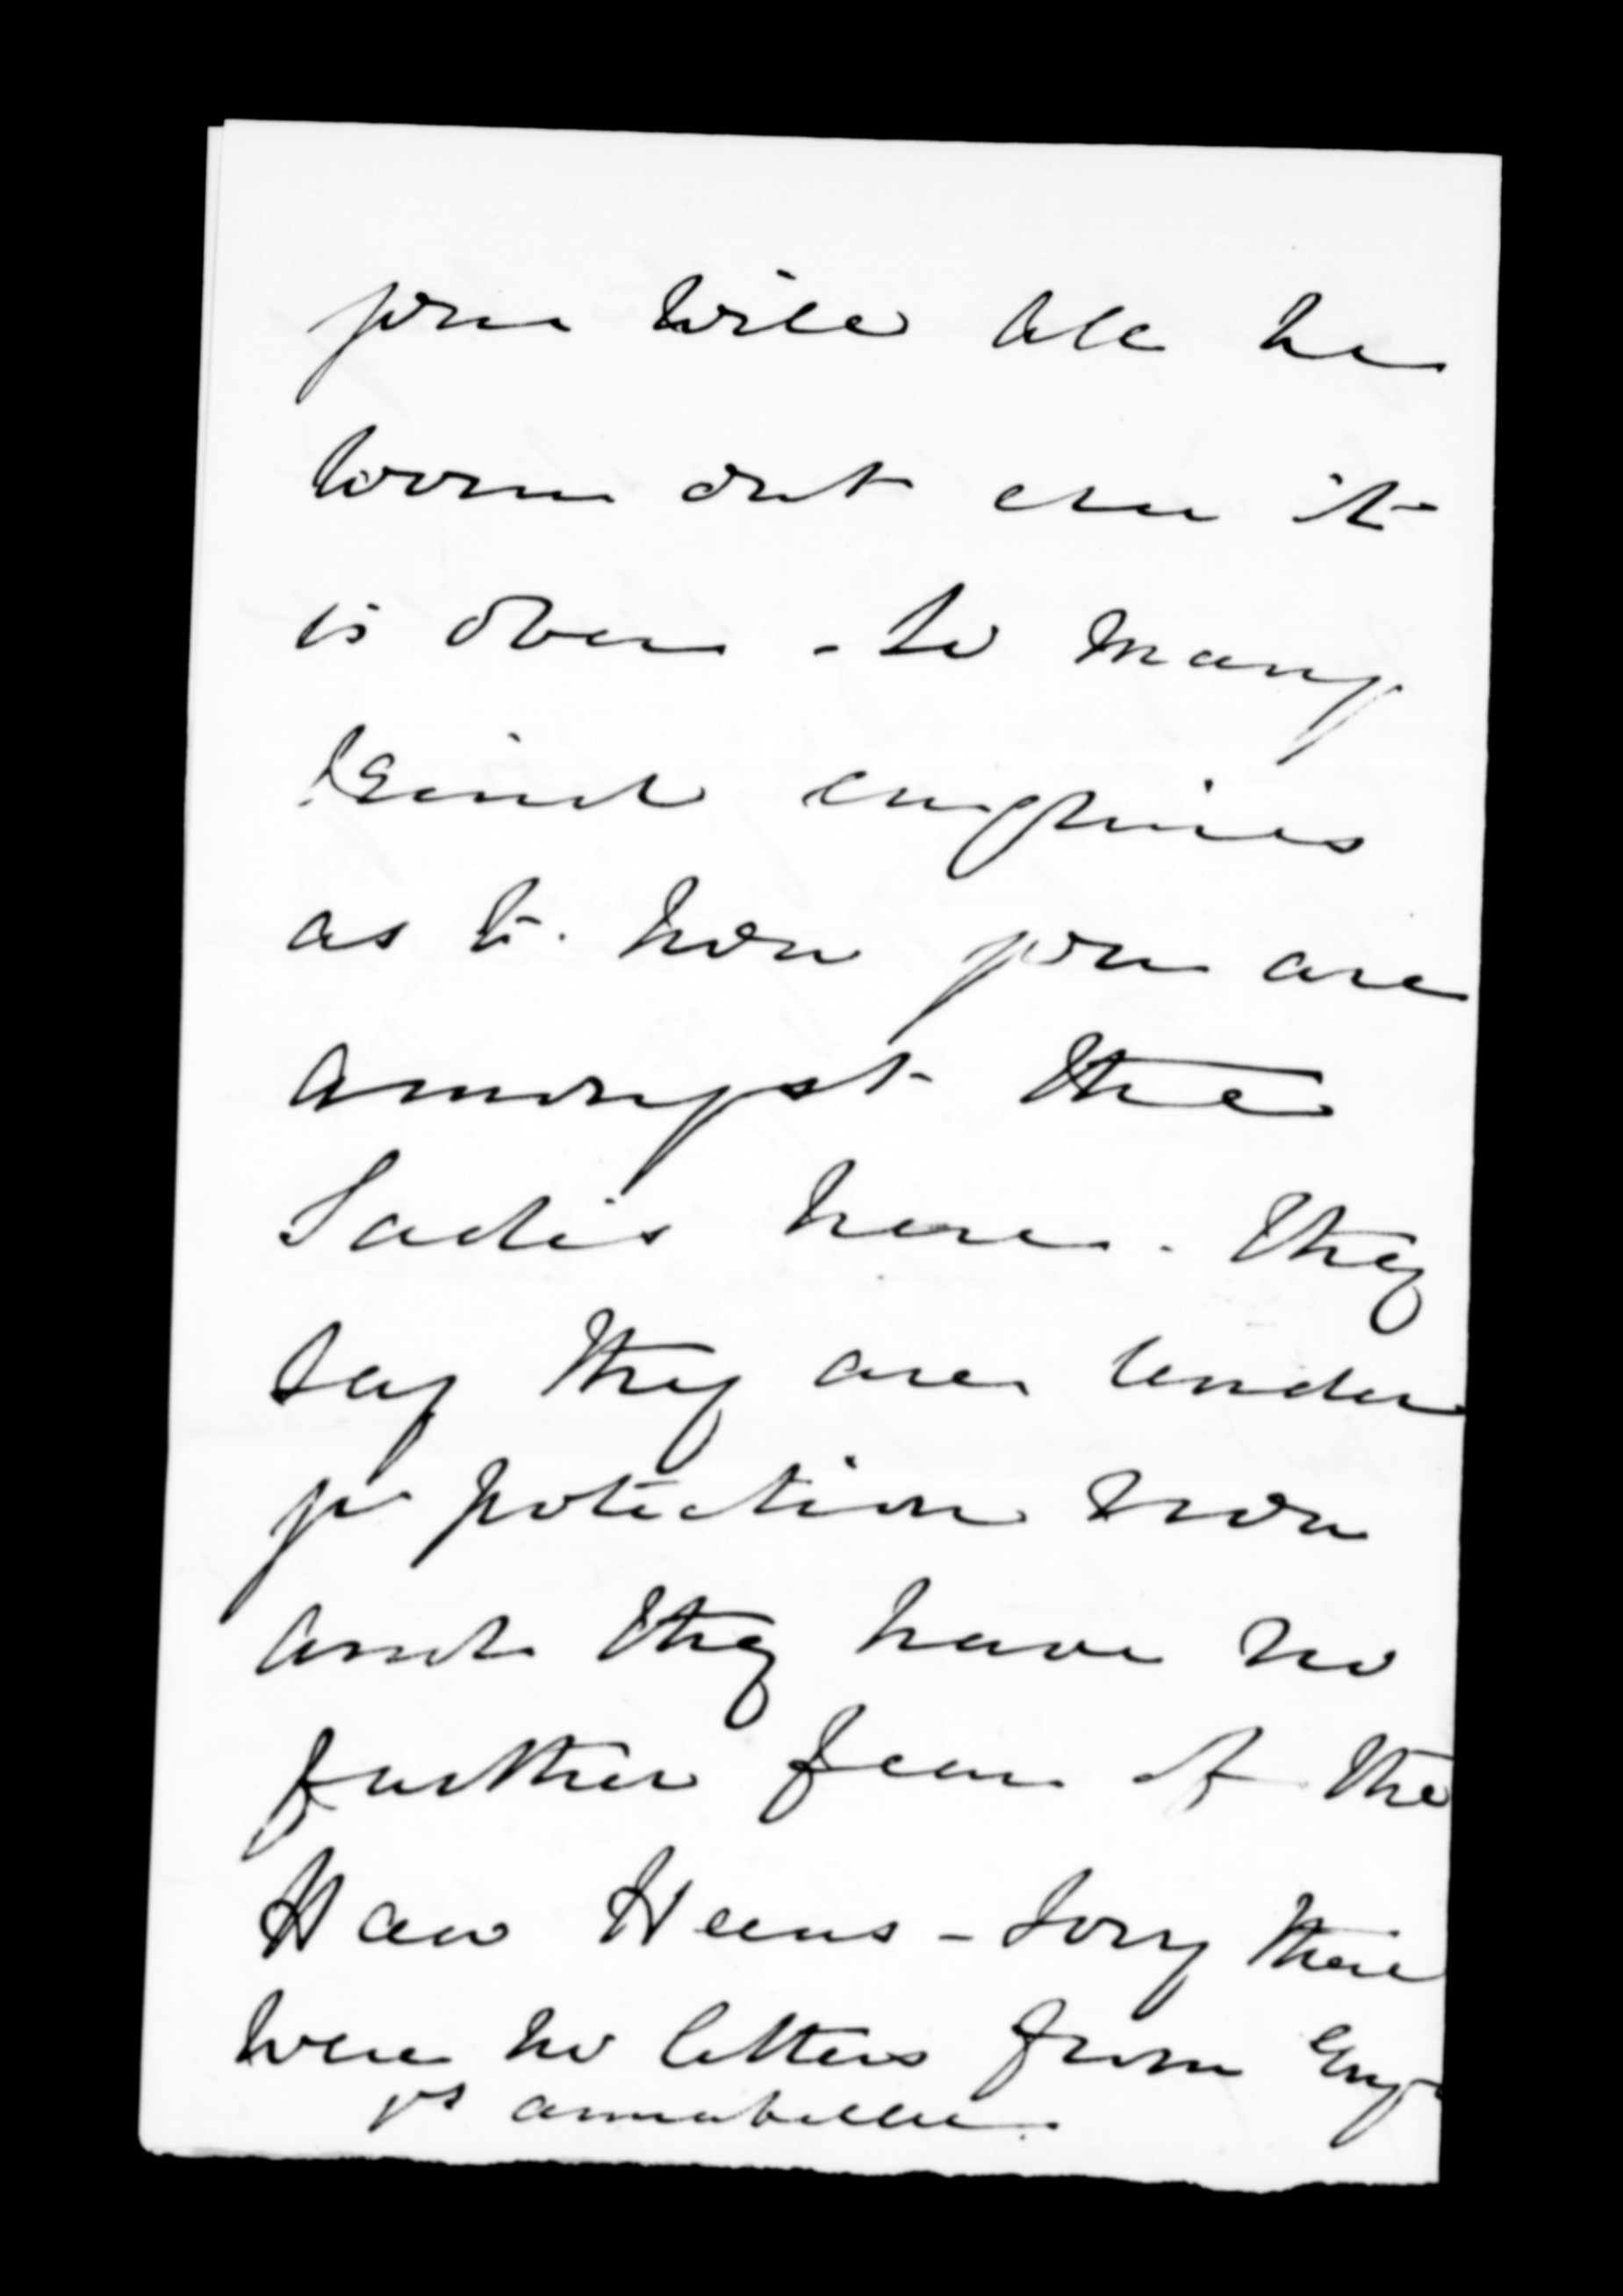 you will all be
worn out ere it
is over - So many
kind enquiries
as to how you are
amongst the
Ladies here. They
say they are under
yr potection now
and they have no
further fear of the
Haw Haws - Sorry there
were no letters from Eng
yrs annabella